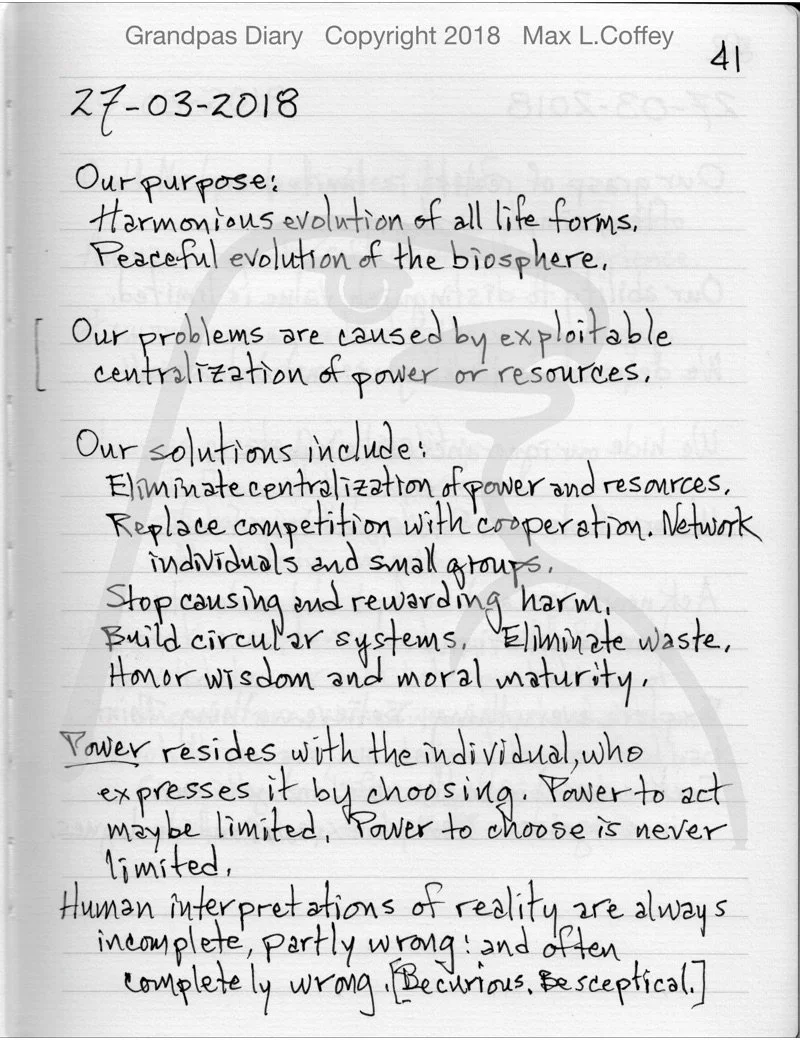 Grandpas Diary Copyright 2018 Max L.Coffey
41
27-03-2018
Our purpose:
Harmonious evolution of all life forms.
Peaceful evolution of the biosphere.
Our problems are caused by exploitable
centralization of power or resources.
Our solutions include:
Eliminate centralization of power and resources.
Replace competition with cooperation. Network
individuals and small groups.
Stop causing and rewarding harm.
Build circular systems. Eliminate waste.
Honor wisdom and moral maturity.
Power resides with the individual, who
expresses it by choosing. Power to act
maybe limited. Power to choose is never
limited.
Human interpretations of reality are always
incomplete, partly wrong: and often
completely wrong. [Be curious. Be sceptical.]